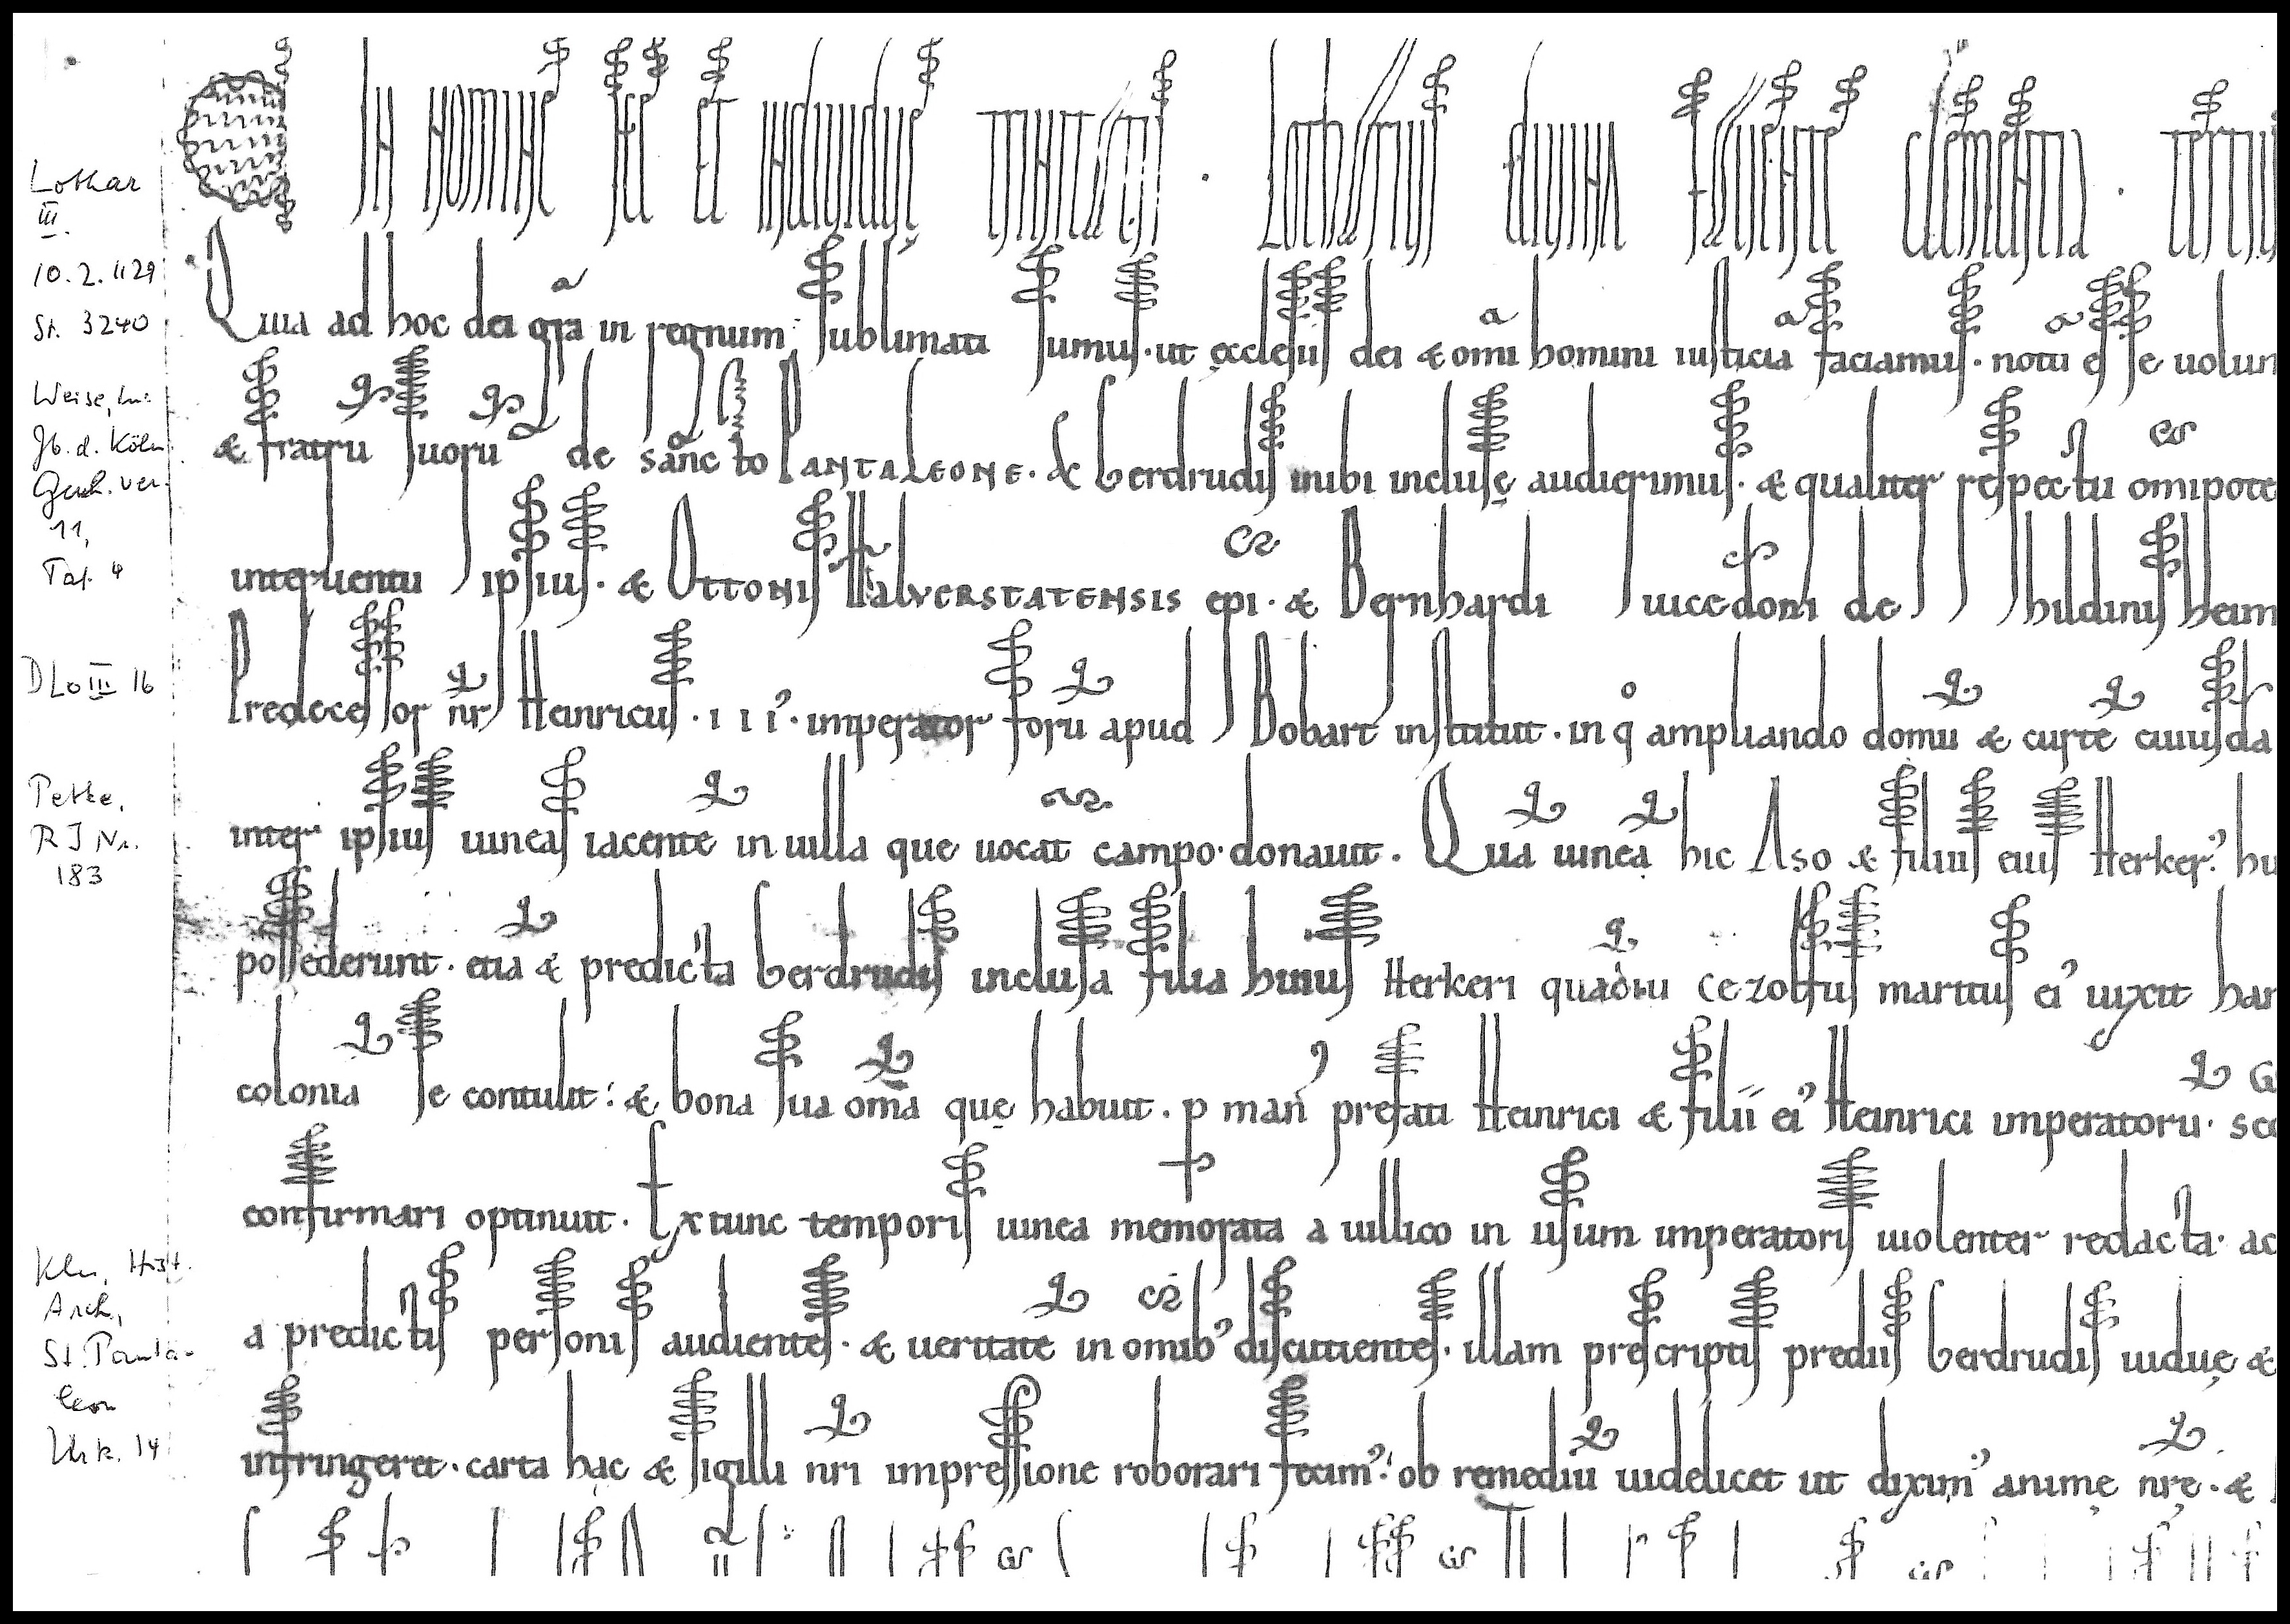 Lothar
III.
10.2.1129
St. 3240
Weise, in:
Jb. d. Köln.
Gesch. ver.
11,
Taf. 4
DLoIII 16
Petke,
RI Nr.
183
Kln, Hist.
Arch,
St. Panta-
leon
Urk. 14
IN NOMINE SCE ET indiuiduę TRINITATIS · Lotharius diuina fauente clementia · tertius
Quia ad hoc dei gra in regnum sublimati sumus · ut ęcclesiis dei & omi homini iusticia faciamus · notu esse uolum
& fratru suoru de sancto PANTALEONE · & Gerdrudis inibi inclusę audierimus · & qualiter respectu omipote
interuentu ipsius · & OTTONIS HALVERSTATENSIS epi · & Bernhardi uicedomi de hildinisheim
Predecessor nr Heinricus · III · imperator foru apud Bobart instituit · in q ampliando domu & curte cuiusda
inter ipsius uineas iacente in uilla que uocat campo · donauit. Qua uinea hic Aso & filius eius Herker' hu
possederunt · etia & predicta Gerdrudis inclusa filia huius Herkeri quadiu Cezolfus maritus ei' uixit han
colonia se contulit: & bona sua oma quę habuit · p man' prefati Heinrici & filii ei' Heinrici imperatoru · sc
confirmari optinuit. Extunc temporis uinea memorata a uillico in usum imperatoris uiolenter redacta · ac
a predictis personis audientes · & ueritate in omib' discutientes · illam prescriptis prediis Gerdrudis uiduę &
infringeret · carta hac & sigilli nri impressione roborari fecim': ob remediu uidelicet ut dixim' anime nrę · &